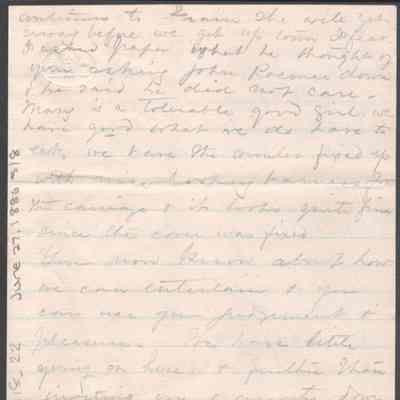 continues to rain the will get
away before we get up town I
I asked papa what he thought of
your asking John down
& he said he did not care.
Mary is a tolerable good girl. we
have good what we do have to
eat, we have the fixed up
with nice looking for
the carriage & it looks quite fine
since the cover was fixed.
You now know about how
we can entertain & you
can use your judgement &
pleasure. We have little
going on here & further than
inviting one & down
June 27, 1886